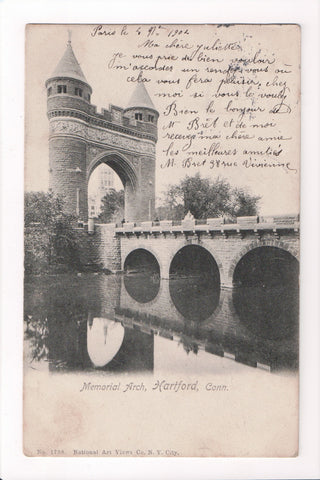 Paris le 9 1902
Ma chère Juliette
Je vous prie de bien vouloir
m'accorder un rendez vous où
cela vous fera plaisir, chez
moi si vous le voulez
Bien le bonjour de
M. Bret et de moi
recevez ma chère amie
les meilleures amitiés
M. Bret 98 rue Vivienne
Memorial Arch, Hartford, Conn.
No. 1798. National Art Views Co. N. Y. City.